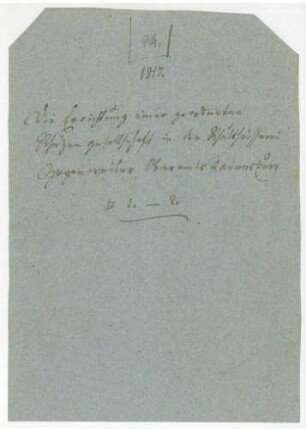 24.
1817.
Die Errichtung einer geordneten
Schüzengesellschaft in der Schultheisserei
Oberamts Ravensburg
1. — 2.